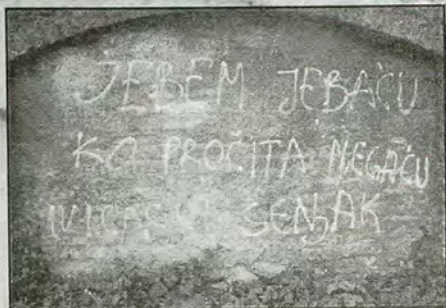 JEBEM JEBAĆU
KO PROČITA NEGAĆU
SENJAK